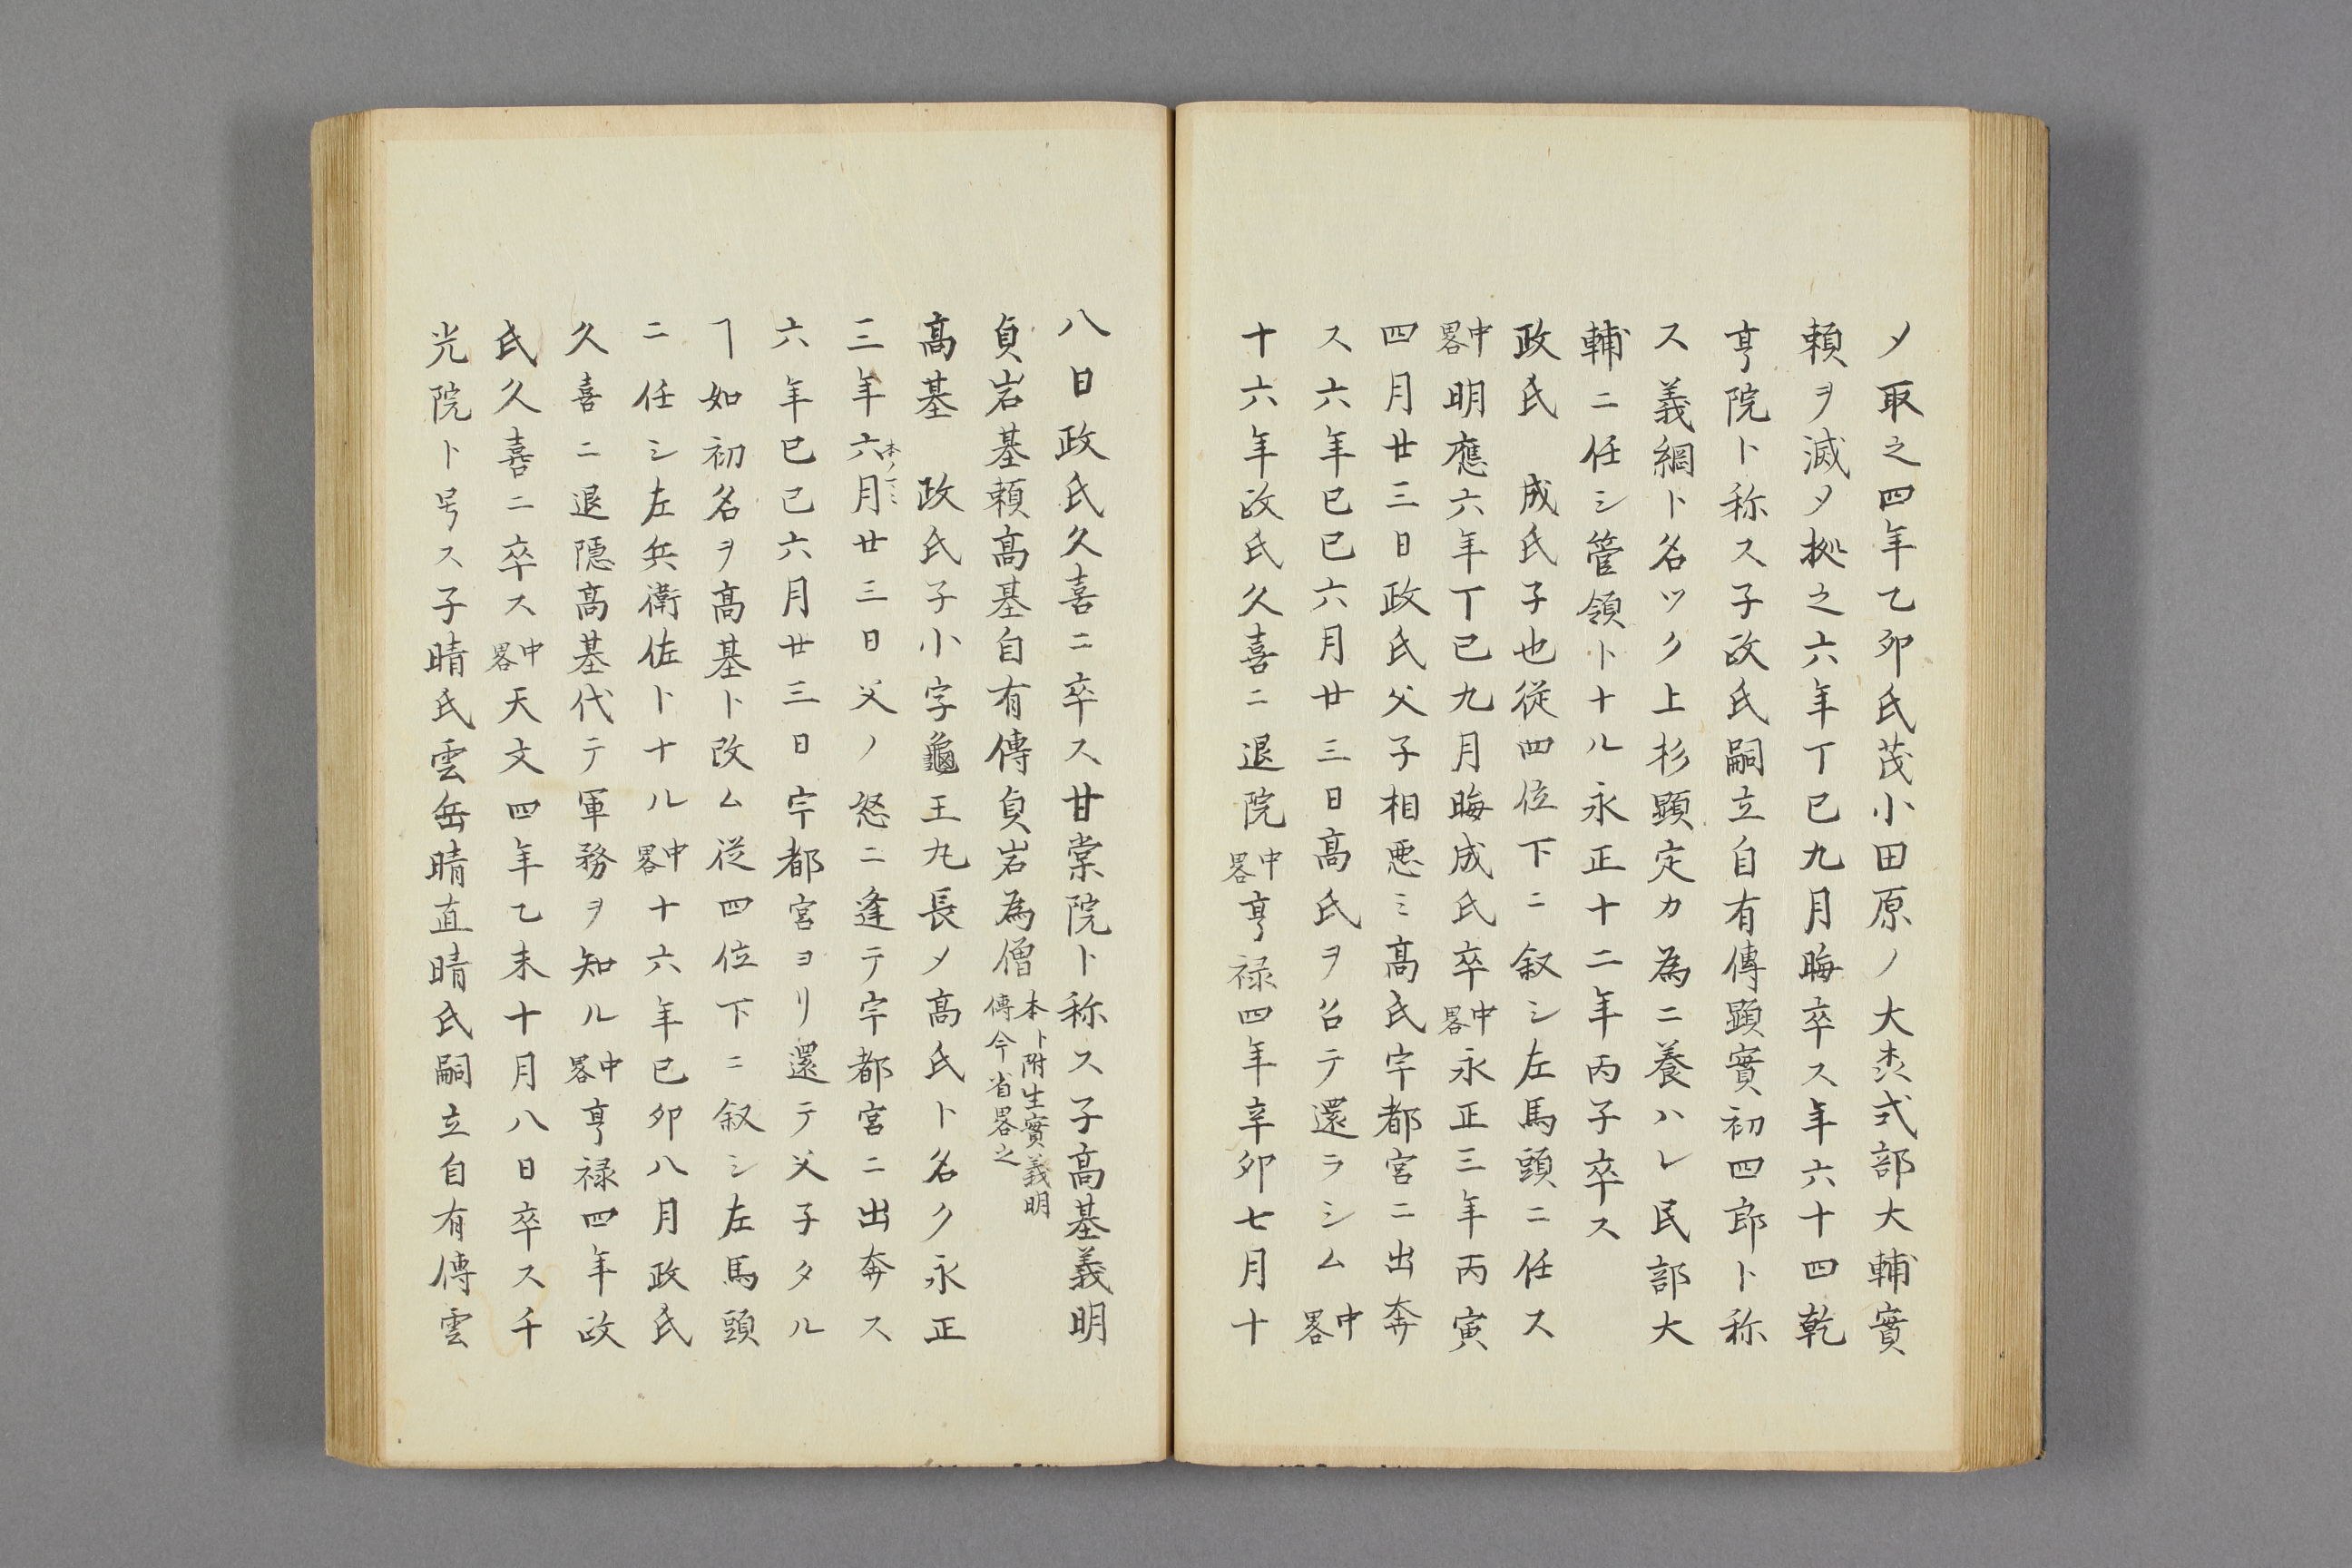 メ取之四年乙卯氏茂小田原ノ大森式部大輔實
頼ヲ滅メ拠之六年丁巳九月晦卒ス年六十四乾
亨院ト称ス子政氏嗣立自有傳顕實初四郎ト称
ス義綱ト名ツク上杉顕定カ為ニ養ハレ民部大
輔ニ任シ管領トナル永正十二年丙子卒ス
政氏　成氏子也従四位下ニ叙シ左馬頭ニ任ス
中畧明應六年丁巳九月晦成氏卒中畧永正三年丙寅
四月廿三日政氏父子相悪ミ高氏宇都宮ニ出奔
ス六年巳巳六月廿三日高氏ヲ召テ還ラシム中畧
十六年政氏久喜ニ退院中畧亨禄四年辛卯七月十
八日政氏久喜ニ卒ス甘棠院ト称ス子高基義明
貞岩基頼高基自有傳貞岩為僧本ト附生實義明傳今省畧之
高基　政氏子小字龜王丸長メ高氏ト名ク永正
三年六月本ノマヽ廿三日父ノ怒ニ逢テ宇都宮ニ出奔ス
六年巳巳六月廿三日宇都宮ヨリ還テ父子タル
ヿ如初名ヲ高基ト改ム従四位下ニ叙シ左馬頭
ニ任シ左兵衛佐トナル中畧十六年巳卯八月政氏
久喜ニ退隠高基代テ軍務ヲ知ル中畧亨禄四年政
氏久喜ニ卒ス中畧天文四年乙未十月八日卒ス千
光院ト号ス子晴氏雲岳晴直晴氏嗣立自有傳雲